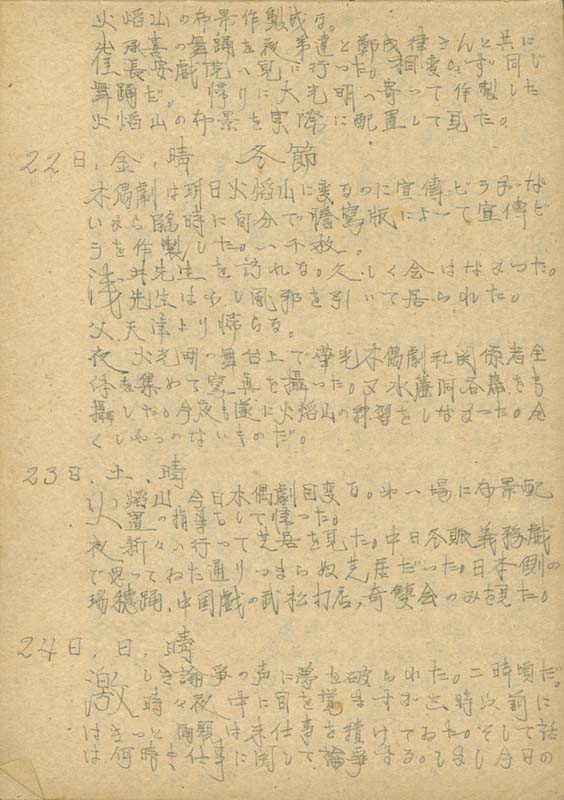 火焰山の布景作製成る。
崔承喜の舞踊を夜弟達と鄭成律さんと共に
長安戲院へ見に行った。相変らず同じ
舞踊だ。帰りに大光明へ寄って作製した
火焰山の布景を実際に配置して見た。
22日,金,晴 冬節
木偶劇は明日火焰山に変るのに宣傳ビラ
いから臨時に自分で謄寫版によって宣傳ビ
ラを作製した。一千枚。
浅井先生を訪れる。久しく会はなかった。
先生は少し風邪を引いて居られた。
父,天津より帰らる。
夜 大光明の舞台上で華光木偶劇社関係者全
体を集めて寫真を攝った。又水簾洞各幕をも
攝した。今夜も遂に火焰山の練習をしなかった。全
くしやうのないものだ。
23日,土,晴
火焰山,今日木偶劇目変る。場に布景配
置の指導をして帰った。
夜 新々へ行って芝居を見た。中日冬賑義務戲
で思ってゐた通りつまらぬ芝居だった。日本側の
瑞穂踊,中国戲の武松打店,奇雙会のみを見た。
24日,日,晴
激しき論爭の声に夢を破られた。二時頃だ。
時々夜中に目を覚ますが,時以前に
はきっと両親は未仕事を續けてゐた。そして話
は何時も仕事に関して論爭する。しかし今日の